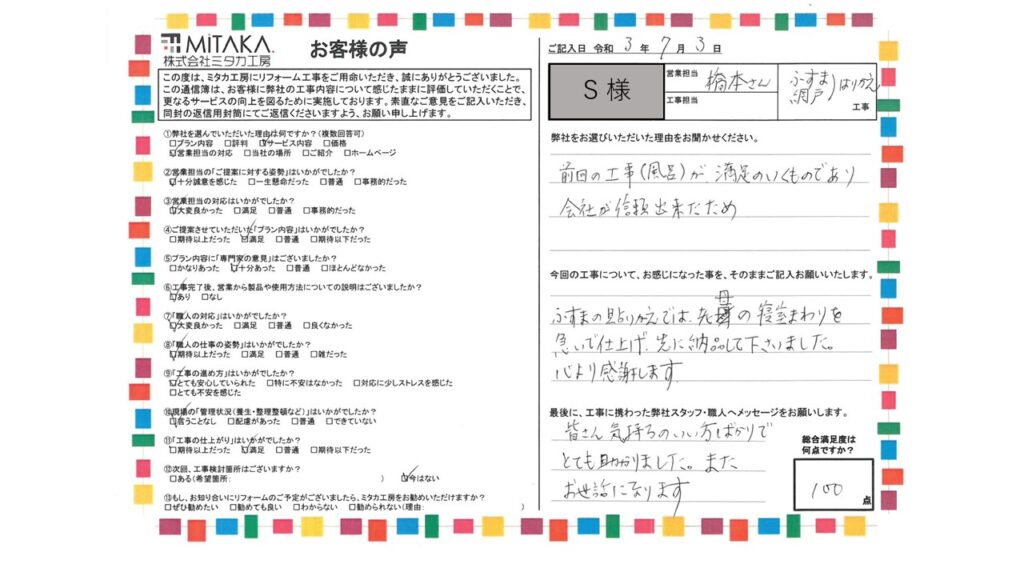 MiTAKA.
株式会社ミタカ工房
お客様の声
この度は、ミタカ工房にリフォーム工事をご用命いただき、誠にありがとうございました。
この通信簿は、お客様に弊社の工事内容について感じたままに評価していただくことで、
更なるサービスの向上を図るために実施しております。素直なご意見をご記入いただき、
同封の返信用封筒にてご返信くださいますよう、お願い申し上げます。
①弊社を選んでいただいた理由は何ですか？(複数回答可)
□プラン内容 □評判 ☑サービス内容 □価格
☑営業担当の対応 □当社の場所 □ご紹介 □ホームページ
②営業担当の「ご提案に対する姿勢」はいかがでしたか？
☑十分誠意を感じた □一生懸命だった □普通 □事務的だった
③営業担当の対応はいかがでしたか？
☑大変良かった □満足 □普通 □事務的だった
④ご提案させていただいた「プラン内容」はいかがでしたか？
□期待以上だった ☑満足 □普通 □期待以下だった
⑤プラン内容に「専門家の意見」はございましたか？
□かなりあった ☑十分あった □普通 □ほとんどなかった
⑥工事完了後、営業から製品や使用方法についての説明はございましたか？
☑あり □なし
⑦「職人の対応」はいかがでしたか？
☑大変良かった □満足 □普通 □良くなかった
⑧「職人の仕事の姿勢」はいかがでしたか？
☑期待以上だった □満足 □普通 □雑だった
⑨「工事の進め方」はいかがでしたか？
☑とても安心していられた □特に不安はなかった □対応に少しストレスを感じた
□とても不安を感じた
⑩現場の「管理状況(養生・整理整頓など)」はいかがでしたか？
☑言うことなし □配慮があった □普通 □できていない
⑪「工事の仕上がり」はいかがでしたか？
□期待以上だった ☑満足 □普通 □期待以下だった
⑫次回、工事検討箇所はございますか？
□ある(希望箇所: ) ☑今はない
⑬もし、お知り合いにリフォームのご予定がございましたら、ミタカ工房をお勧めいただけますか？
□ぜひ勧めたい □勧めても良い □わからない □勧められない(理由: )
ご記入日 令和 3 年 7 月 3 日
S 様
営業担当 橋本さん
工事担当
ふすま
網戸 はりかえ
工事
弊社をお選びいただいた理由をお聞かせください。
前回の工事(風呂)が、満足のいくものであり
会社が信頼出来たため
今回の工事について、お感じになった事を、そのままご記入お願いいたします。
ふすまの貼りかえでは、先 母の寝室まわりを
急いで仕上げ、先に納品して下さいました。
心より感謝します
最後に、工事に携わった弊社スタッフ・職人へメッセージをお願いします。
皆さん気持ちのいい方ばかりで
とても助かりました。また
お世話になります
総合満足度は
何点ですか？
100 点